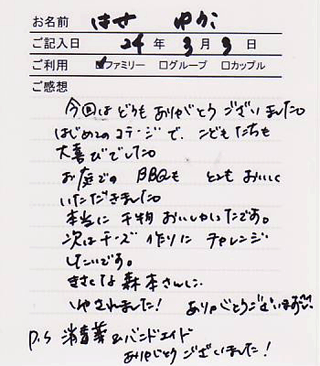 お名前 はせ ゆか
ご記入日 24 年 3 月 3 日
ご利用 ☑ファミリー □グループ □カップル
ご感想
今回はどうもありがとうございました。
はじめてのコテージで、こどもたちも
大喜びでした。
お庭での BBQも とてもおいしく
いただきました。
本当に 干物 おいしかったです。
次はチーズ作りに チャレンジ
したいです。
すてきな 森本さんに
いやされました! ありがとうございます。
P.S 消毒薬&バンドエイド
ありがとうございました!